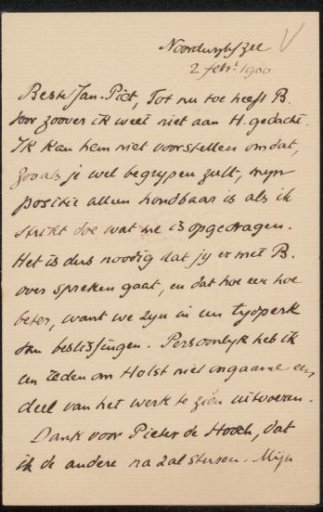 Noordwijk/Zee
2 febr. 1900
Beste Jan-Piet, Tot nu toe heeft B.
voor zoover ik weet niet aan H. gedacht.
Ik kan hem niet voorstellen omdat,
zooals je wel begrypen zult, myn
positie alleen houdbaar is als ik
strikt doe wat me is opgedragen.
Het is dus noodig dat jy er met B.
over spreken gaat, en dat hoe eer hoe
beter, want we zyn in een tydperk
van beslissingen. Persoonlyk heb ik
en zeden om Holst niet ongaarne een
deel van het werk te zien uitvoeren.
Dank voor Pieter de Hooch, dat
ik de andere na zal sturen. Mijn